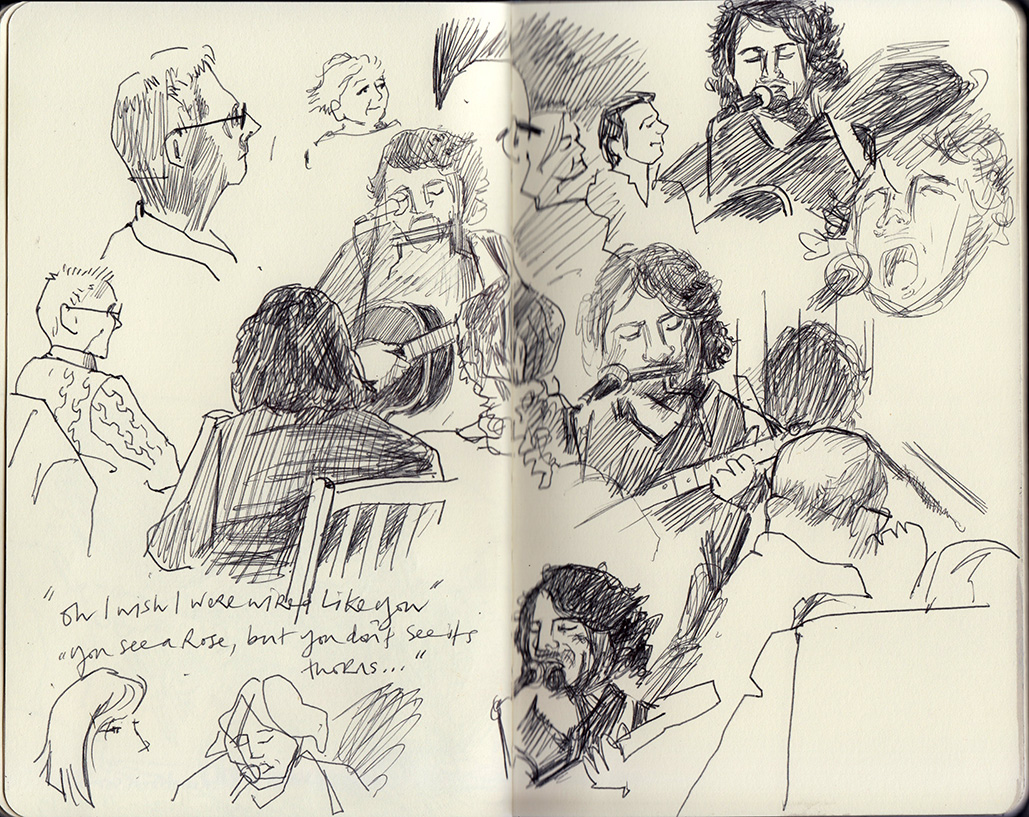 "Oh I wish I were wired like you"
"you see a Rose, but you don't see its
thorns..."